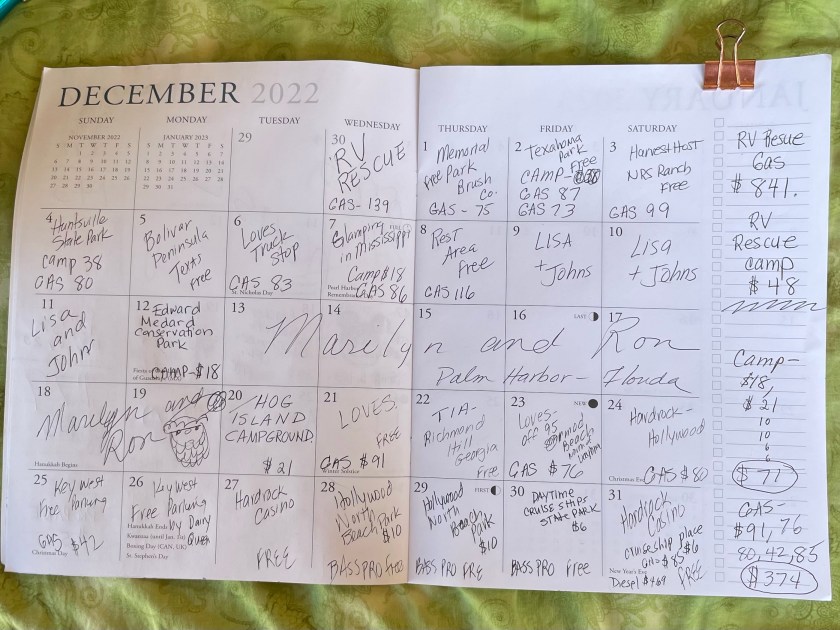 DECEMBER 2022
SUNDAY MONDAY TUESDAY WEDNESDAY THURSDAY FRIDAY SATURDAY
NOVEMBER 2022
S M T W T F S
1 2 3 4 5
6 7 8 9 10 11 12
13 14 15 16 17 18 19
20 21 22 23 24 25 26
27 28 29 30
JANUARY 2023
S M T W T F S
1 2 3 4 5 6 7
8 9 10 11 12 13 14
15 16 17 18 19 20 21
22 23 24 25 26 27 28
29 30 31
29
30
RV
RESCUE
GAS - 139
1 Memorial
Free Park
Brush
Co.
GAS - 75
2 Texhoma
Park
CAMP - Free
GAS 87
GAS 73
3 Harvest Host
NRS Ranch
Free
GAS 99
4 Huntsville
State Park
Camp 38
GAS 80
5
Bolivar
Peninsula
Texas
Free
6
Loves
Truck
Stop
GAS 83
St. Nicholas Day
7 FULL
Glamping
in Mississippi
Camp $18
Pearl Harbor
Remembrance
GAS 86
8 Rest
Area
Free
GAS 116
9 LISA
+ Johns
10
Lisa
+ Johns
11
Lisa
and
John
12 Edward
Medard
Conservation
Park
CAMP - $18
13
14
15
16 LAST
17
Marilyn and Ron
Palm Harbor - Florida
18
19
Marilyn and
Ron
Hanukkah Begins
20 HOG
ISLAND
CAMPGROUND
$21
21
LOVES
FREE
GAS $91
Winter Solstice
22
TIA -
Richmond
Hill
Georgia
Free
23 NEW
Loves -
off 95
Beach
GAS $76
24
Hardrock -
Hollywood
Christmas Eve
GAS $80
25 Key West
Free Parking
GAS $42
Christmas Day
26 Key West
Free Parking
by Dairy
Queen
Hanukkah Ends
Kwanzaa (until Jan. 1st)
Boxing Day (CAN, UK)
St. Stephen's Day
27
Hardrock
Casino
FREE
28
Hollywood
North
Beach Park
$10
BASS PRO Free
29 FIRST
Hollywood
North
Beach
Park
$10
BASS PRO FRE
30
DAYTIME
CRUISE SHIPS
STATE PARK
$6
BASS PRO Free
31
Hardrock
Casino
cruiseship place
GAS $85 $6
New Year's Eve
Diesel $4.69 FREE
RV Resue
Gas
$841.
RV
Rescue
camp
$48
Camp -
$18,
$21
10
10
6
6
$71
GAS -
$91, 76
80, 42, 85
$374
JANUARY